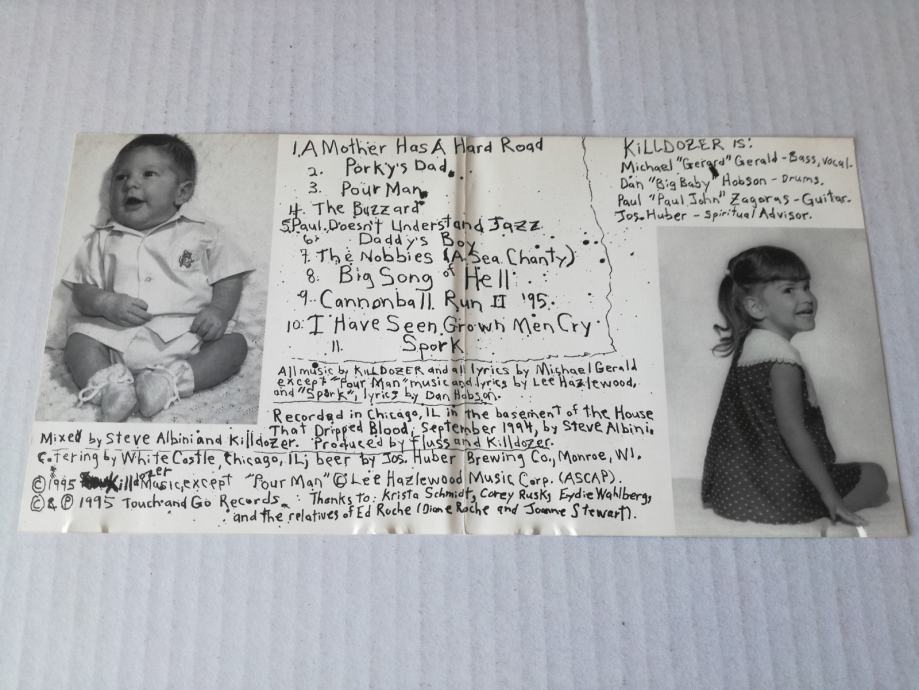 1. A Mother Has A Hard Road
2. Porky's Dad
3. Pour Man
4. The Buzzard
5. Paul Doesn't Understand Jazz
6. Daddy's Boy
7. The Nobbies (A Sea Chanty)
8. Big Song of Hell
9. Cannonball Run II '95
10. I Have Seen Grown Men Cry
11. Spork
All music by KILLDOZER and all lyrics by Michael Gerald
except "Pour Man" music and lyrics by Lee Hazlewood,
and "Spork", lyrics by Dan Hobson.
Recorded in Chicago, IL in the basement of the House
That Dripped Blood, September 1994, by Steve Albini.
Mixed by Steve Albini and Killdozer. Produced by Fluss and Killdozer.
Catering by White Castle, Chicago, IL; beer by Jos. Huber Brewing Co., Monroe, WI.
©1995 Killdozer Music, except "Pour Man" © Lee Hazlewood Music Corp. (ASCAP).
© & ℗ 1995 Touch and Go Records. Thanks to: Krista Schmidt, Corey Rusk, Eydie Wahlberg,
and the relatives of Ed Roche (Diane Roche and Joanne Stewart).
KILLDOZER IS:
Michael "Gerard" Gerald - Bass, vocal.
Dan "Big Baby" Hobson - Drums.
Paul "Paul John" Zagoras - Guitar.
Jos. Huber - Spiritual Advisor.